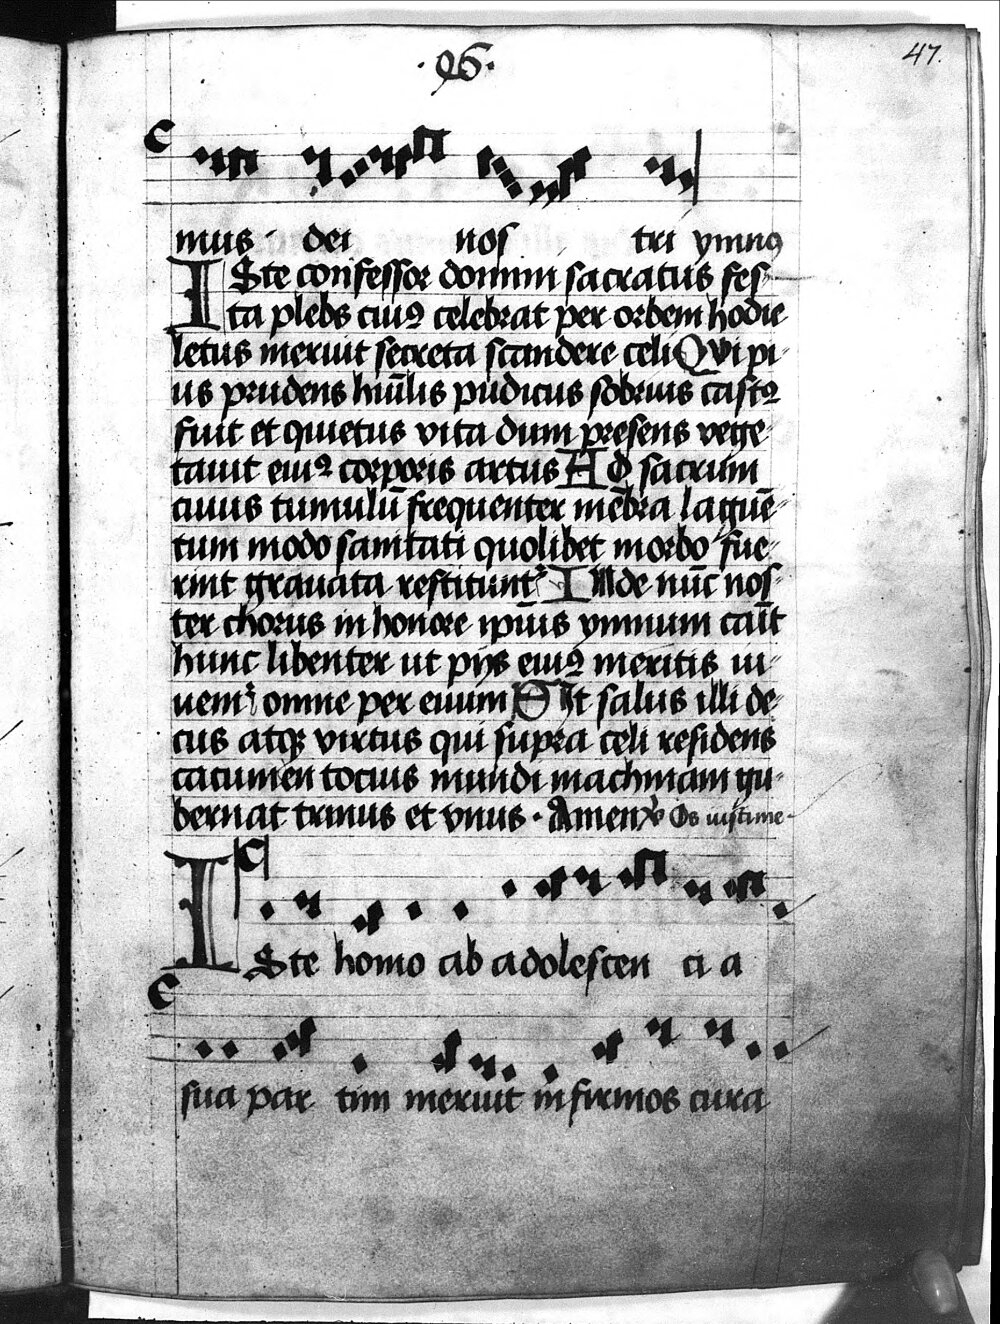 ·96·
47.
mus · dei nos tri ymnꝯ
ISte confessor domini sacratus fes-
ta plebs cuiꝰ celebrat per orbem hodie
letus meruit secreta scandere celi Qvi pi-
us prudens hūılis pudicus sobrius castꝰ
fuit et quietus vita dum presens vege-
tauit eiuꝰ corporis artus AD sacrum
cuius tumulū frequenter mēbra laguē-
tum modo sanitati quolibet morbo fue-
rint grauata restituntͬ INde nūc nos-
ter chorus in honore ipīus ymnum canīt
hunc libenter ut pijs eiuꝰ meritis iu-
uemͬ omne per euum SIt salus illi de-
cus atqꝫ virtus qui supra celi residens
cacumen tocius mundi machinam gu-
bernat trinus et vnus · Amen ℣ Os iusti me-
ISte homo ab adolescen ci a
sua par tim meruit infirmos cura